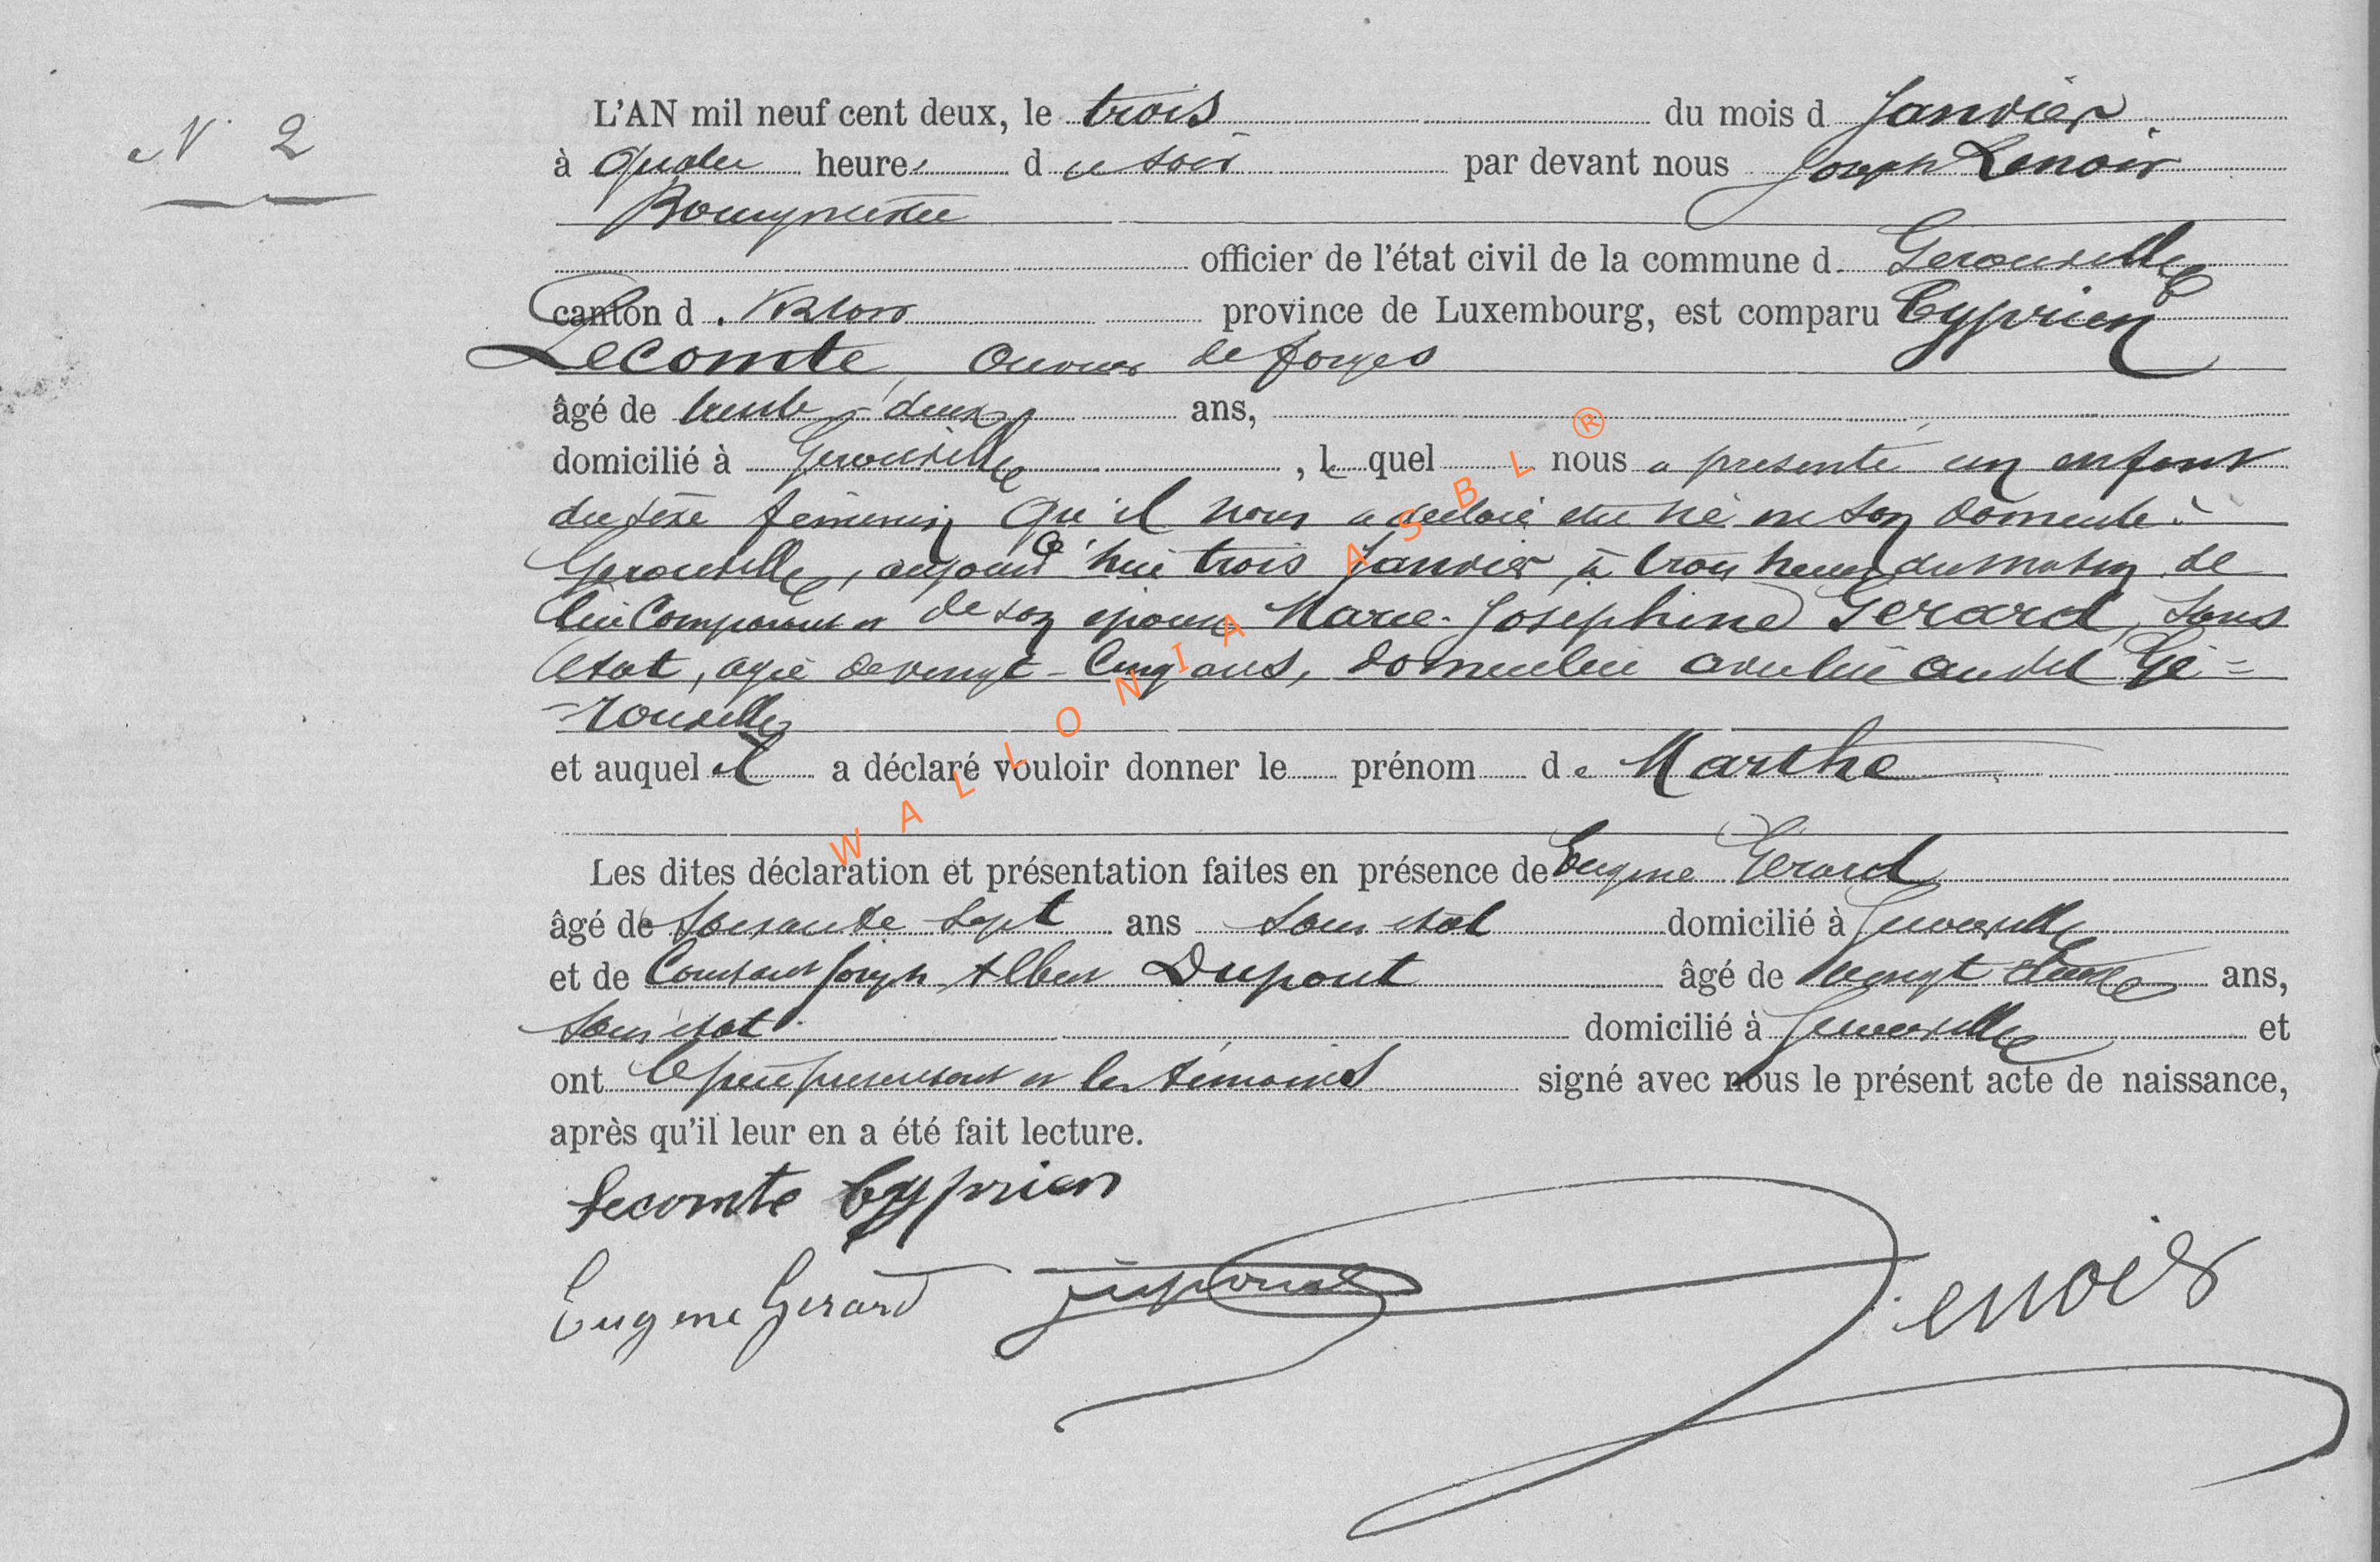 N° 2
L'AN mil neuf cent deux, le trois du mois d Janvier
à quatre heures d u soir par devant nous Joseph Lenoir
Bourgmestre
officier de l'état civil de la commune d Gerouville
canton d Virton province de Luxembourg, est comparu Cyprien
Lecomte, ouvrier de forges
âgé de trente-deux ans,
domicilié à Gerouville, le quel nous a présenté un enfant
du sexe féminin qu'il nous a déclaré être né en son domicile à
Gerouville, aujourd'hui trois Janvier, à trois heures du matin de
lui Comparant et de son épouse Marie-Joséphine Gerard, sans
état, agée de vingt-cinq ans, domiciliée avec lui au dit Gé=
=rouville
et auquel il a déclaré vouloir donner le prénom de Marthe
Les dites déclaration et présentation faites en présence de Eugène Gerard
âgé de soixante sept ans sans état domicilié à Gerouville
et de Constant Joseph Albert Dupont âgé de ans,
sans état domicilié à Gerouville et
ont le père présentant et les témoins signé avec nous le présent acte de naissance,
après qu'il leur en a été fait lecture.
Lecomte Cyprien
Eugene Gerard Dupont Lenoir
WALLONIA ASBL ®